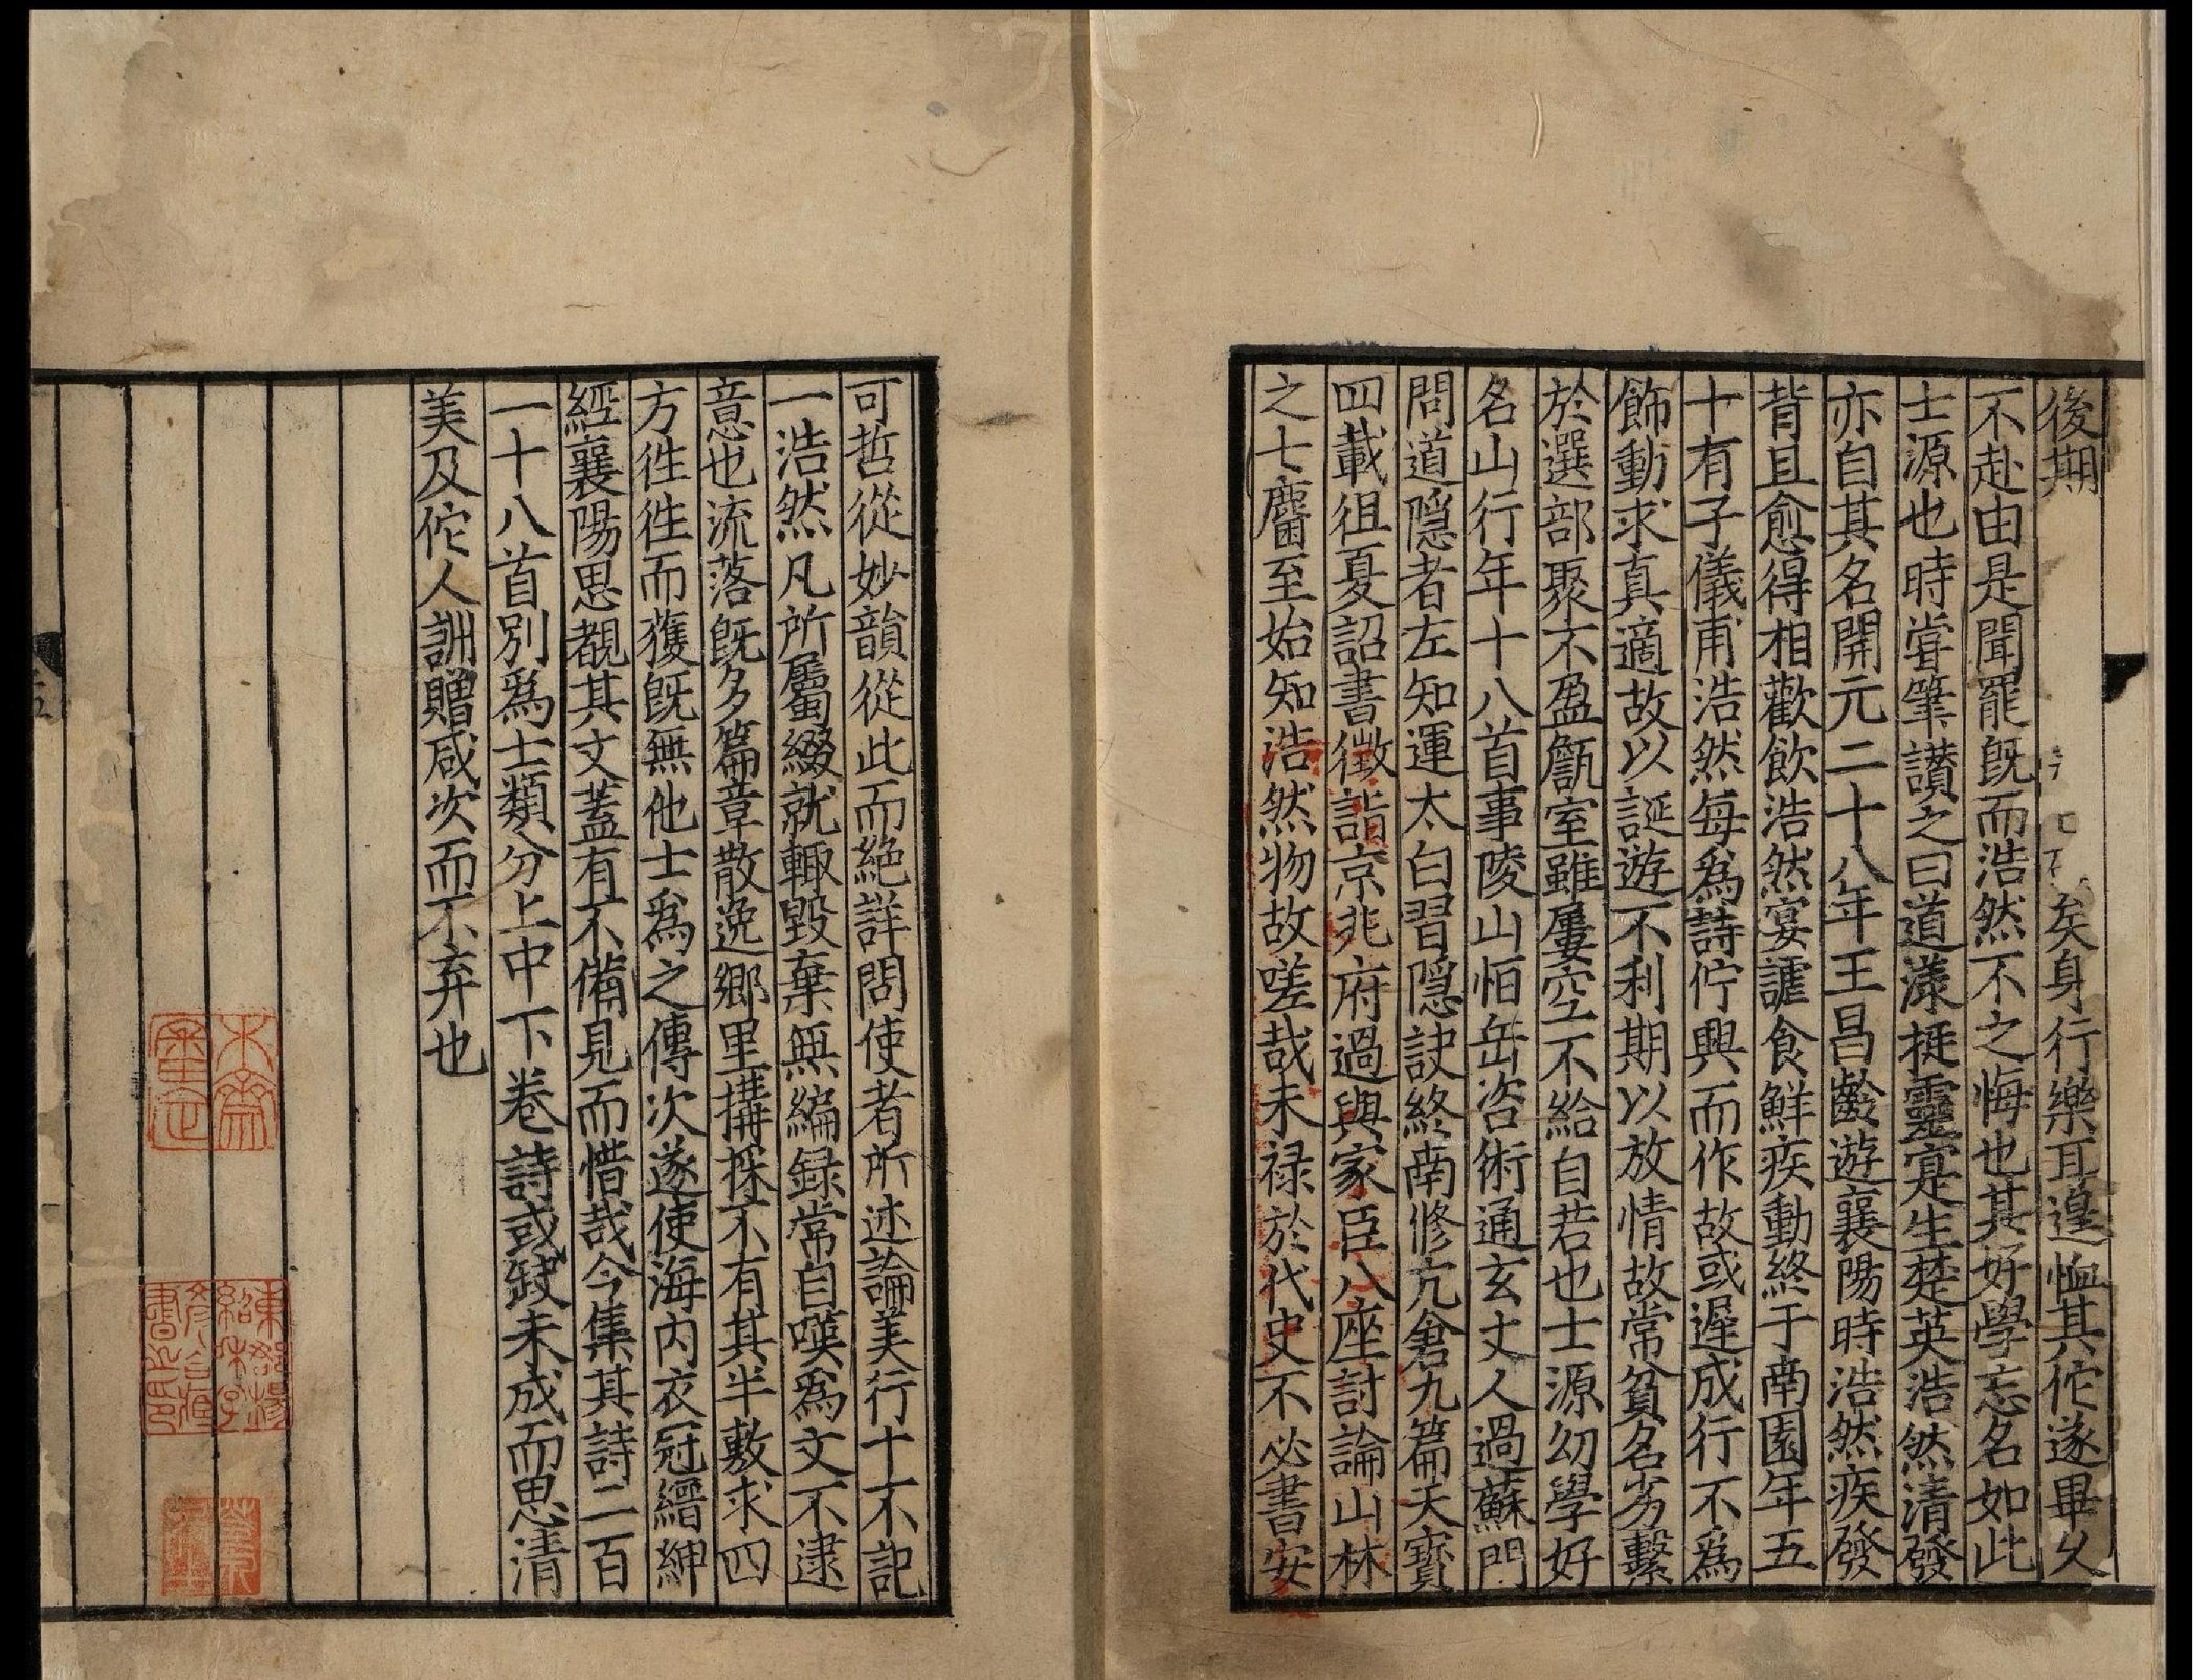 後期矣身行樂耳遑恤其佗遂畢乆
不赴由是聞罷旣而浩然不之悔也其好學忘名如此
士源也時嘗筆讃之曰道漾挺靈寔生楚英浩然清發
亦自其名開元二十八年王昌齡遊襄陽時浩然疾發
背且愈得相歡飲浩然宴謔食鮮疾動終于南園年五
十有子儀甫浩然每爲詩佇興而作故或遲成行不爲
飾動求真適故以誕遊不利期以放情故常貧名劣繫
於選部聚不盈甔室雖屢空不給自若也士源幼學好
名山行年十八首事陵山恒岳咨術通玄丈人過蘇門
問道隱者左知運太白習隱訣終南修亢倉九篇天寶
四載徂夏詔書徵詣京兆府過與家臣八座討論山林
之士麕至始知浩然物故嗟哉未禄於代史不必書安
可哲從妙韻從此而絶詳問使者所述論美行十不記
一浩然凡所屬綴就輙毀棄無編録常自嘆爲文不逮
意也流落旣多篇章散逸鄉里搆採不有其半敷求四
方徃徃而獲旣無他士爲之傳次遂使海内衣冠縉紳
經襄陽思覩其文蓋有不備見而惜哉今集其詩二百
一十八首別爲士類分上中下卷詩或缺未成而思清
美及佗人詶贈咸次而不弃也